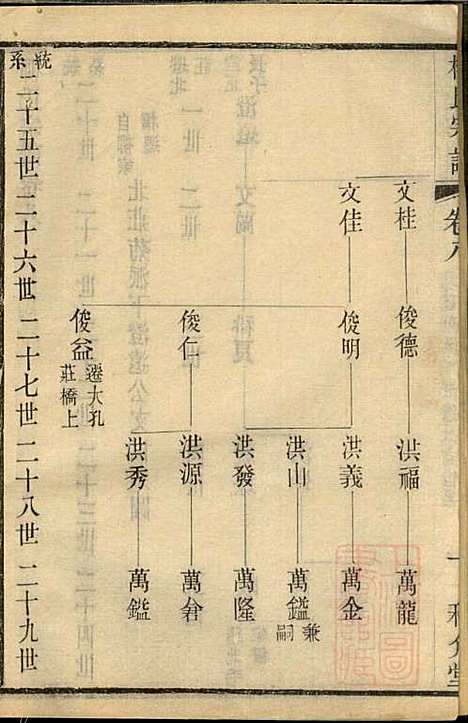 氏宗譜
卷八
文桂
俊德
洪福
萬龍
文佳
俊明
洪義
萬金
洪山
萬鎰
兼
嗣
洪發
萬隆
俊仁
洪源
洪秀
萬鎰
俊益
遷大孔
莊橋上
統系
二十五世
二十六世
二十七世
二十八世
二十九世